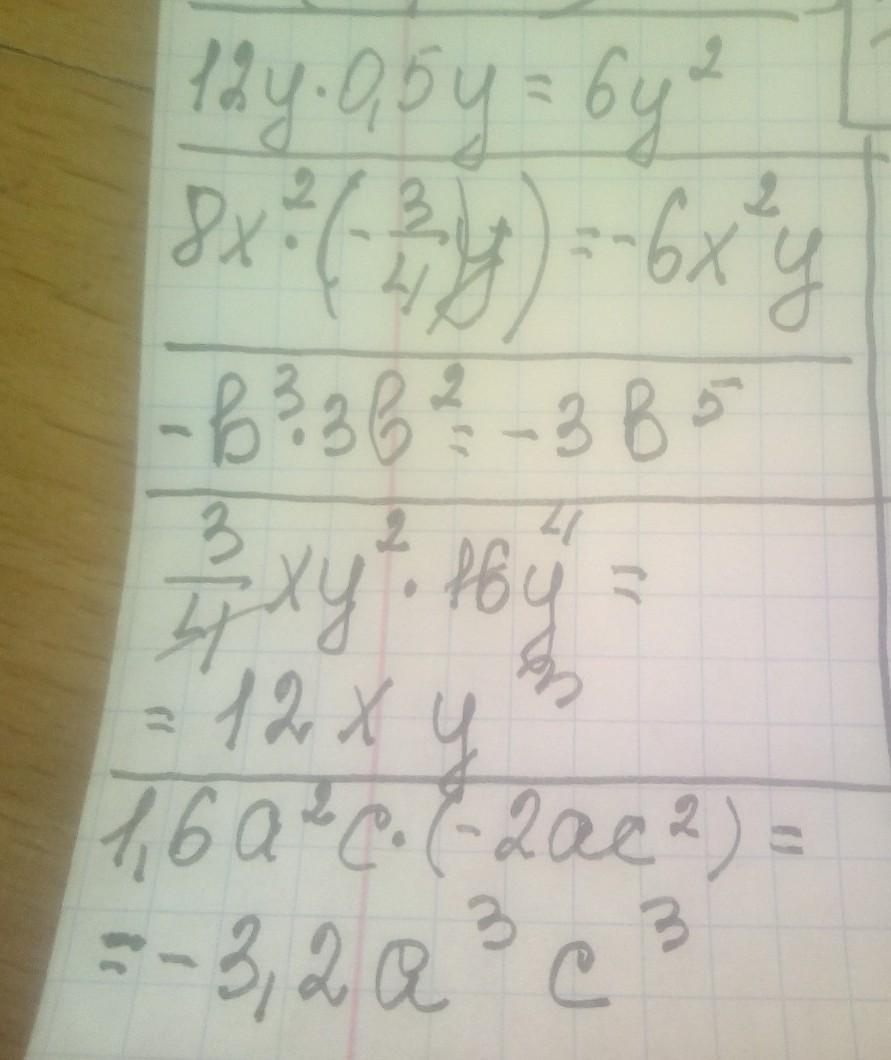 12y · 0,5y = 6y²
8x² · (-3/4 y) = -6x²y
-b³ · 3b² = -3b⁵
3/4 xy² · 16y⁴ =
= 12xy³
1,6a²c · (-2ac²) =
= -3,2a³c³